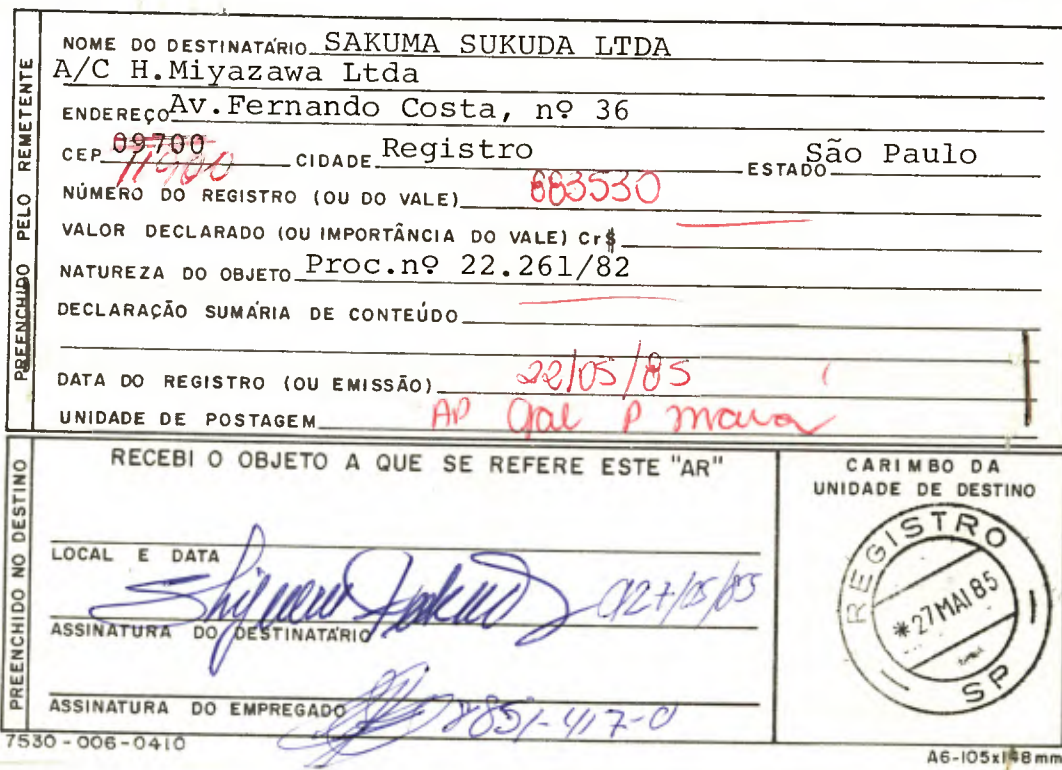 PREENCHIDO PELO REMETENTE
NOME DO DESTINATÁRIO SAKUMA SUKUDA LTDA
A/C H.Miyazawa Ltda
ENDEREÇO Av.Fernando Costa, nº 36
CEP 09700 11900 CIDADE Registro ESTADO São Paulo
NÚMERO DO REGISTRO (OU DO VALE) 663530
VALOR DECLARADO (OU IMPORTÂNCIA DO VALE) Cr$
NATUREZA DO OBJETO Proc.nº 22.261/82
DECLARAÇÃO SUMÁRIA DE CONTEÚDO
DATA DO REGISTRO (OU EMISSÃO) 22/05/85
UNIDADE DE POSTAGEM AP Gal P
PREENCHIDO NO DESTINO
RECEBI O OBJETO A QUE SE REFERE ESTE "AR"
LOCAL E DATA
27/05/85
ASSINATURA DO DESTINATÁRIO
ASSINATURA DO EMPREGADO
CARIMBO DA
UNIDADE DE DESTINO
REGISTRO
*27 MAI 85
SP
7530-006-0410
A6-105x148mm